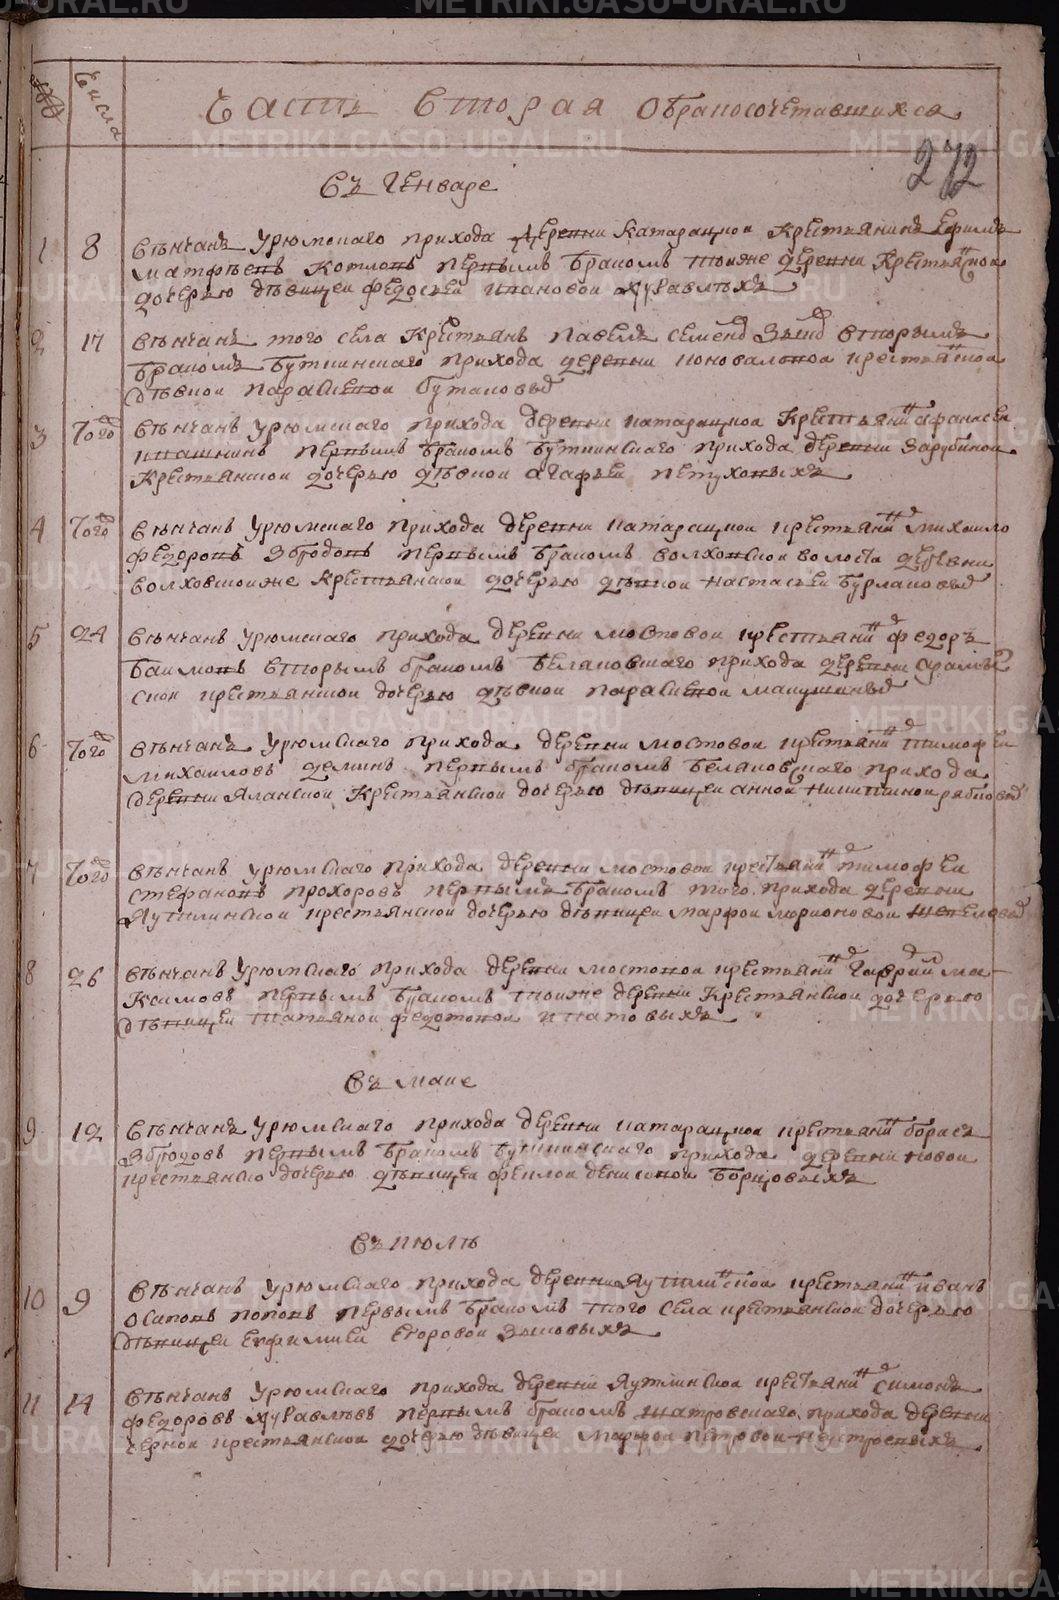 Числа
Часть вторая обракосочетавшихся
272
Въ Генваре
1 8 Венчанъ Урюмскаго прихода деревни Катарацкои Крестьянинъ Ефимъ
Матфеевъ Котловъ первымъ бракомъ тоиже деревни Крестьянскои
дочерью девицеи Федосьеи Ивановои Журавлевыхъ
2 17 Венчанъ того села Крестьянъ Павелъ Семенов вторымъ
бракомъ Буткинскаго прихода деревни Коноваловои крестьянскои
девкои Параскевои Бутаковых
3 того Венчанъ Урюмскаго прихода деревни Катарацкои Крестьянинъ Афанасеи
Ивашкинъ первымъ бракомъ Буткинскаго прихода деревни Зарубинои
Крестьянскои дочерью девкои Агафьеи Петуховыхъ
4 того Венчанъ Урюмскаго прихода деревни Катарацкои крестьянинъ Михаило
Федоровъ Збродовъ первымъ бракомъ Волховскои волости деревни
Волховскоиже Крестьянскои дочерью девкои Настасьеи Бурлаковых
5 24 Венчанъ Урюмскаго прихода деревни Мостовои крестьянинъ Федоръ
Баимовъ вторымъ бракомъ Белаковскаго прихода деревни
скои крестьянскои дочерью девкои Параскевои
6 того Венчанъ Урюмскаго прихода деревни Мостовои крестьянинъ Тимофеи
Михаиловъ Деминъ первымъ бракомъ Белаковскаго прихода
деревни Яланскои Крестьянскои дочерью девицеи Анной Никитинои Рябковых
7 того Венчанъ Урюмскаго прихода деревни Мостовои крестьянинъ Тимофеи
Стефановъ Прохоровъ первымъ бракомъ того прихода деревни
Яутлинскои крестьянскои дочерью девицеи Марфои Шепелевых
8 26 Венчанъ Урюмскаго прихода деревни Мостовои крестьянинъ Гаврил Ма-
ксимовъ первымъ бракомъ тоиже деревни Крестьянскои дочерью
девицеи Татьянои Федотовои Игнатовыхъ
Въ Маие
9 12 Венчанъ Урюмскаго прихода деревни Катарацкои крестьянинъ Борисъ
Збродовъ первымъ бракомъ Буткинскаго прихода деревни Новои
крестьянско дочерью девицеи Феклои Денисовои Борцовыхъ
Въ Июле
10 9 Венчанъ Урюмскаго прихода деревни Яутлинскои крестьянинъ Иванъ
Осиповъ Поповъ первымъ бракомъ того села крестьянскои дочерью
девицеи Евфимиеи Егоровои Зыковыхъ
11 14 Венчанъ Урюмскаго прихода деревни Яутлинскои крестьянинъ Симонъ
Федоровъ Журавлевъ первымъ бракомъ Шатровскаго прихода деревни
Чернои крестьянскои дочерью девицеи Марфои Петровои Неустроевыхъ
METRIKI.GASO-URAL.RU